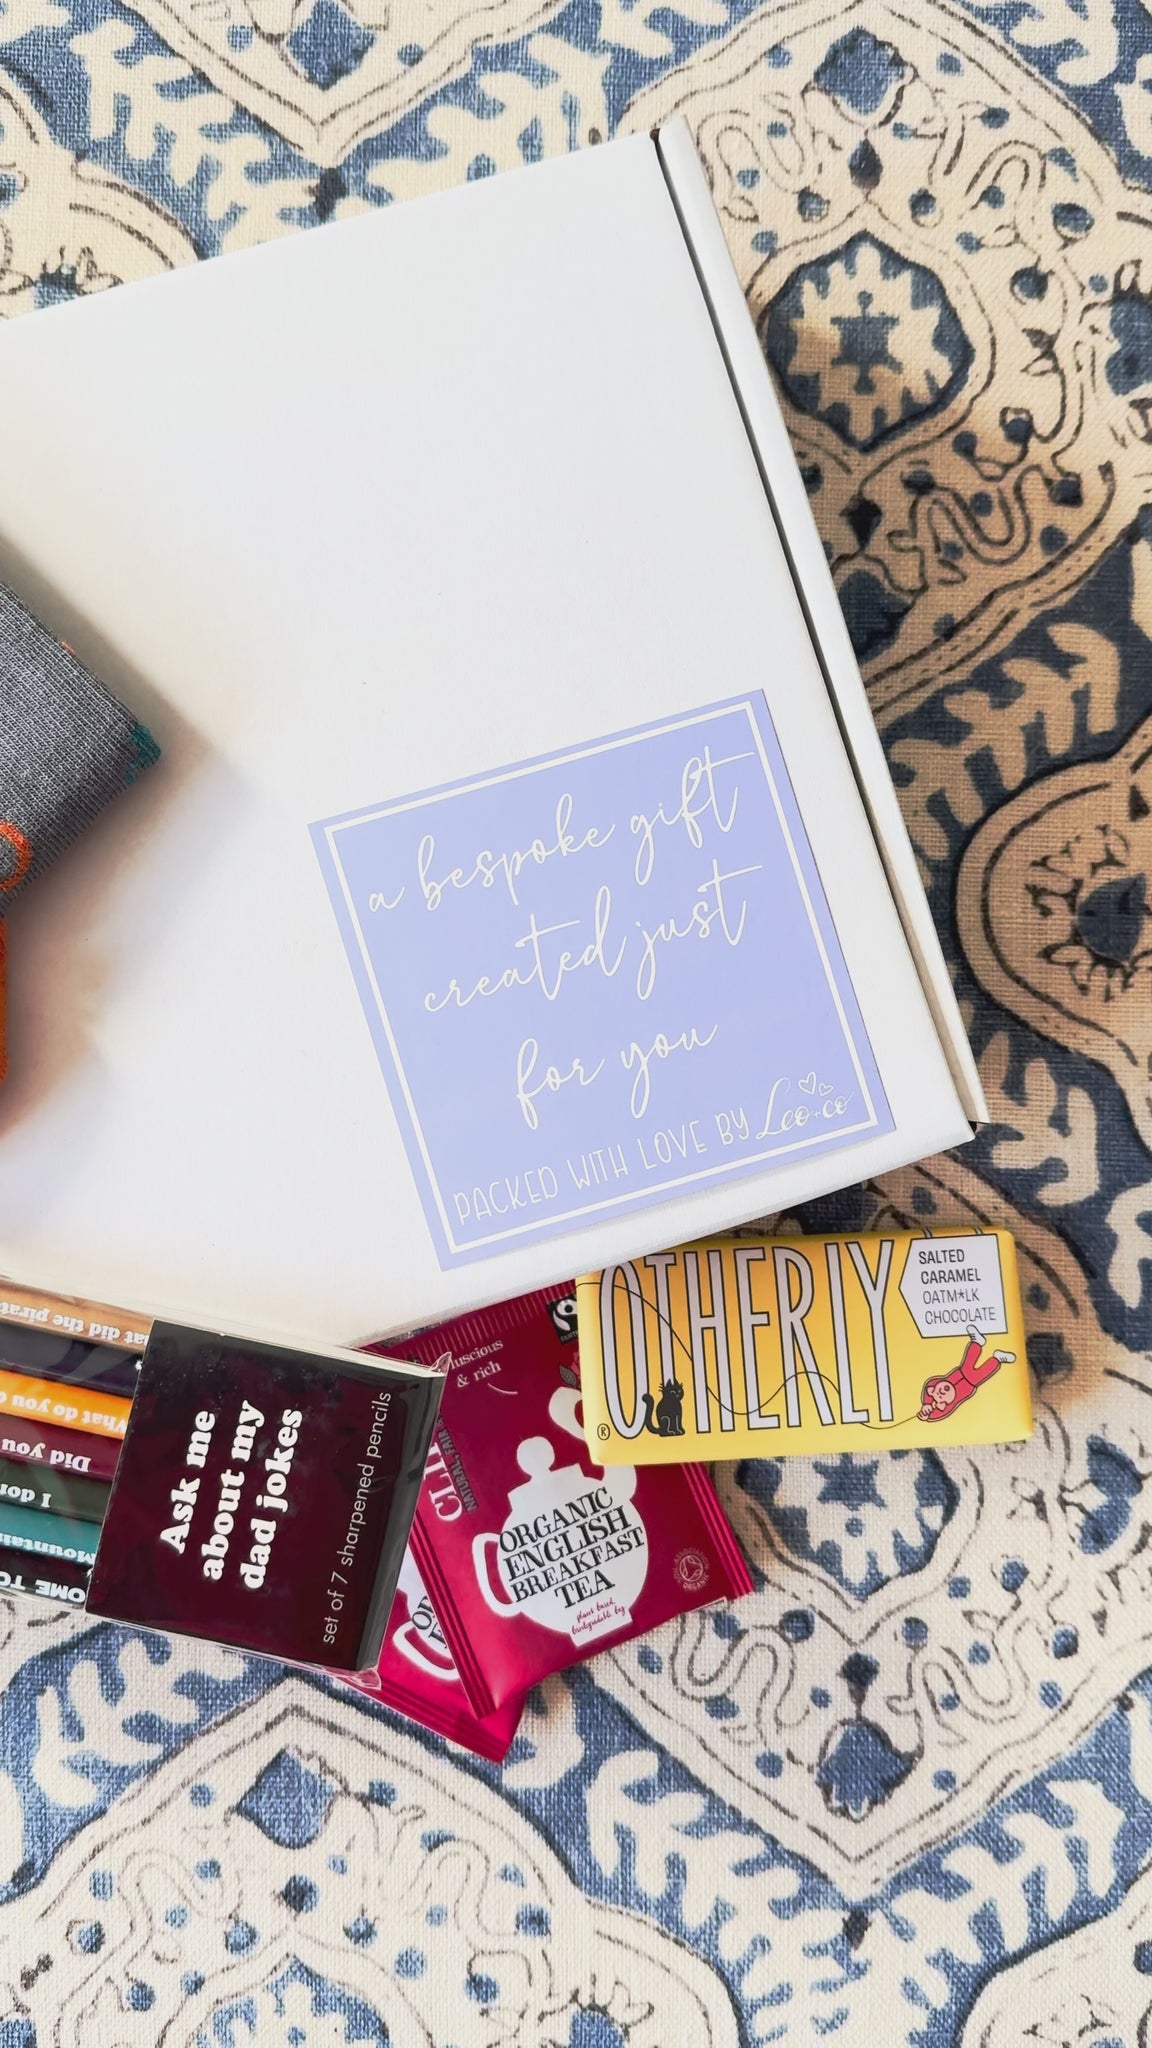 a bespoke gift
created just
for you
PACKED WITH LOVE BY Leo+co
OTHERLY
®
SALTED
CARAMEL
OATM*LK
CHOCOLATE
luscious
& rich
ORGANIC
ENGLISH
BREAKFAST
TEA
plant based,
biodegradable bag
Ask me
about my
dad jokes
set of 7 sharpened pencils
did the
What do you
Did you
I